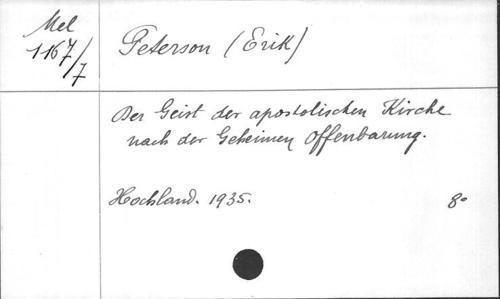 Mel
1167/7
Peterson (Erik)
Der Geist der apostolischen Kirche
nach der Geheimen Offenbarung.
Hochland. 1935. 8°